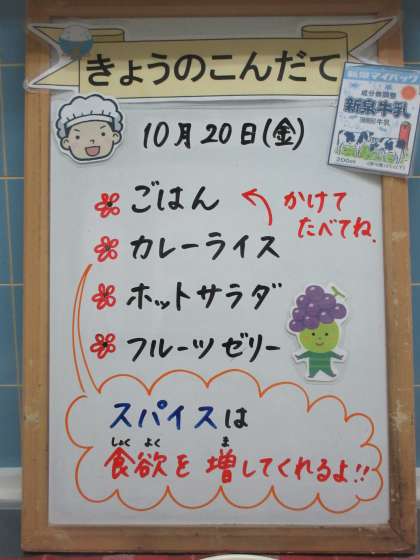 きょうのこんだて
10月20日(金)
ごはん
かけて
たべてね。
カレーライス
ホットサラダ
フルーツゼリー
スパイスは
食欲を増してくれるよ!!
しょく よく ま
成分無調整
新泉牛乳
200ml